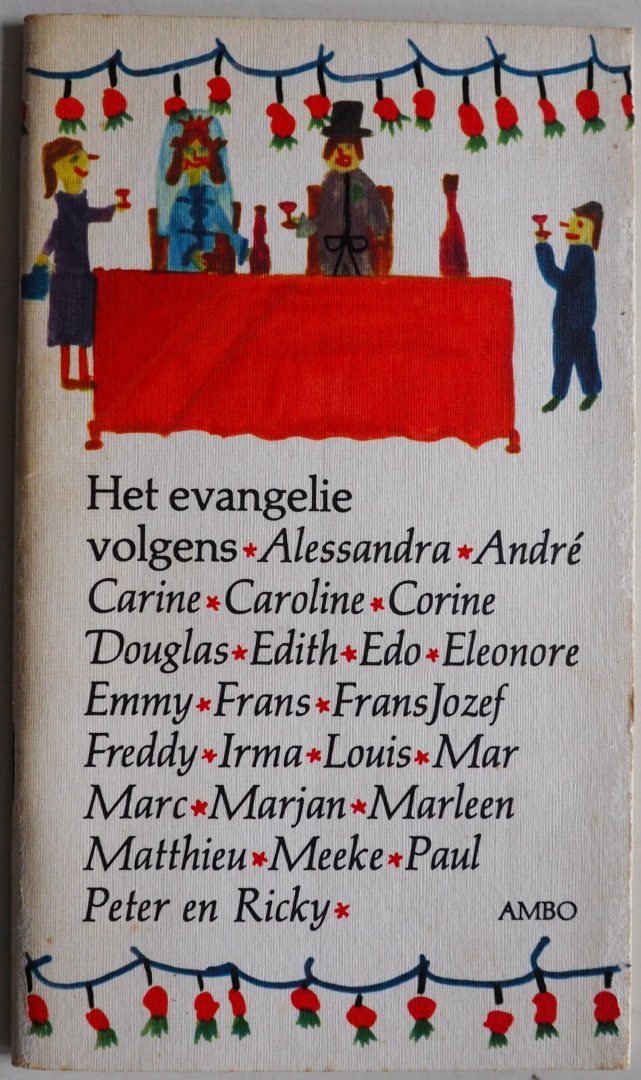 Het evangelie
volgens * Alessandra * André
Carine * Caroline * Corine
Douglas * Edith * Edo * Eleonore
Emmy * Frans * FransJozef
Freddy * Irma * Louis * Mar
Marc * Marjan * Marleen
Matthieu * Meeke * Paul
Peter en Ricky *
AMBO